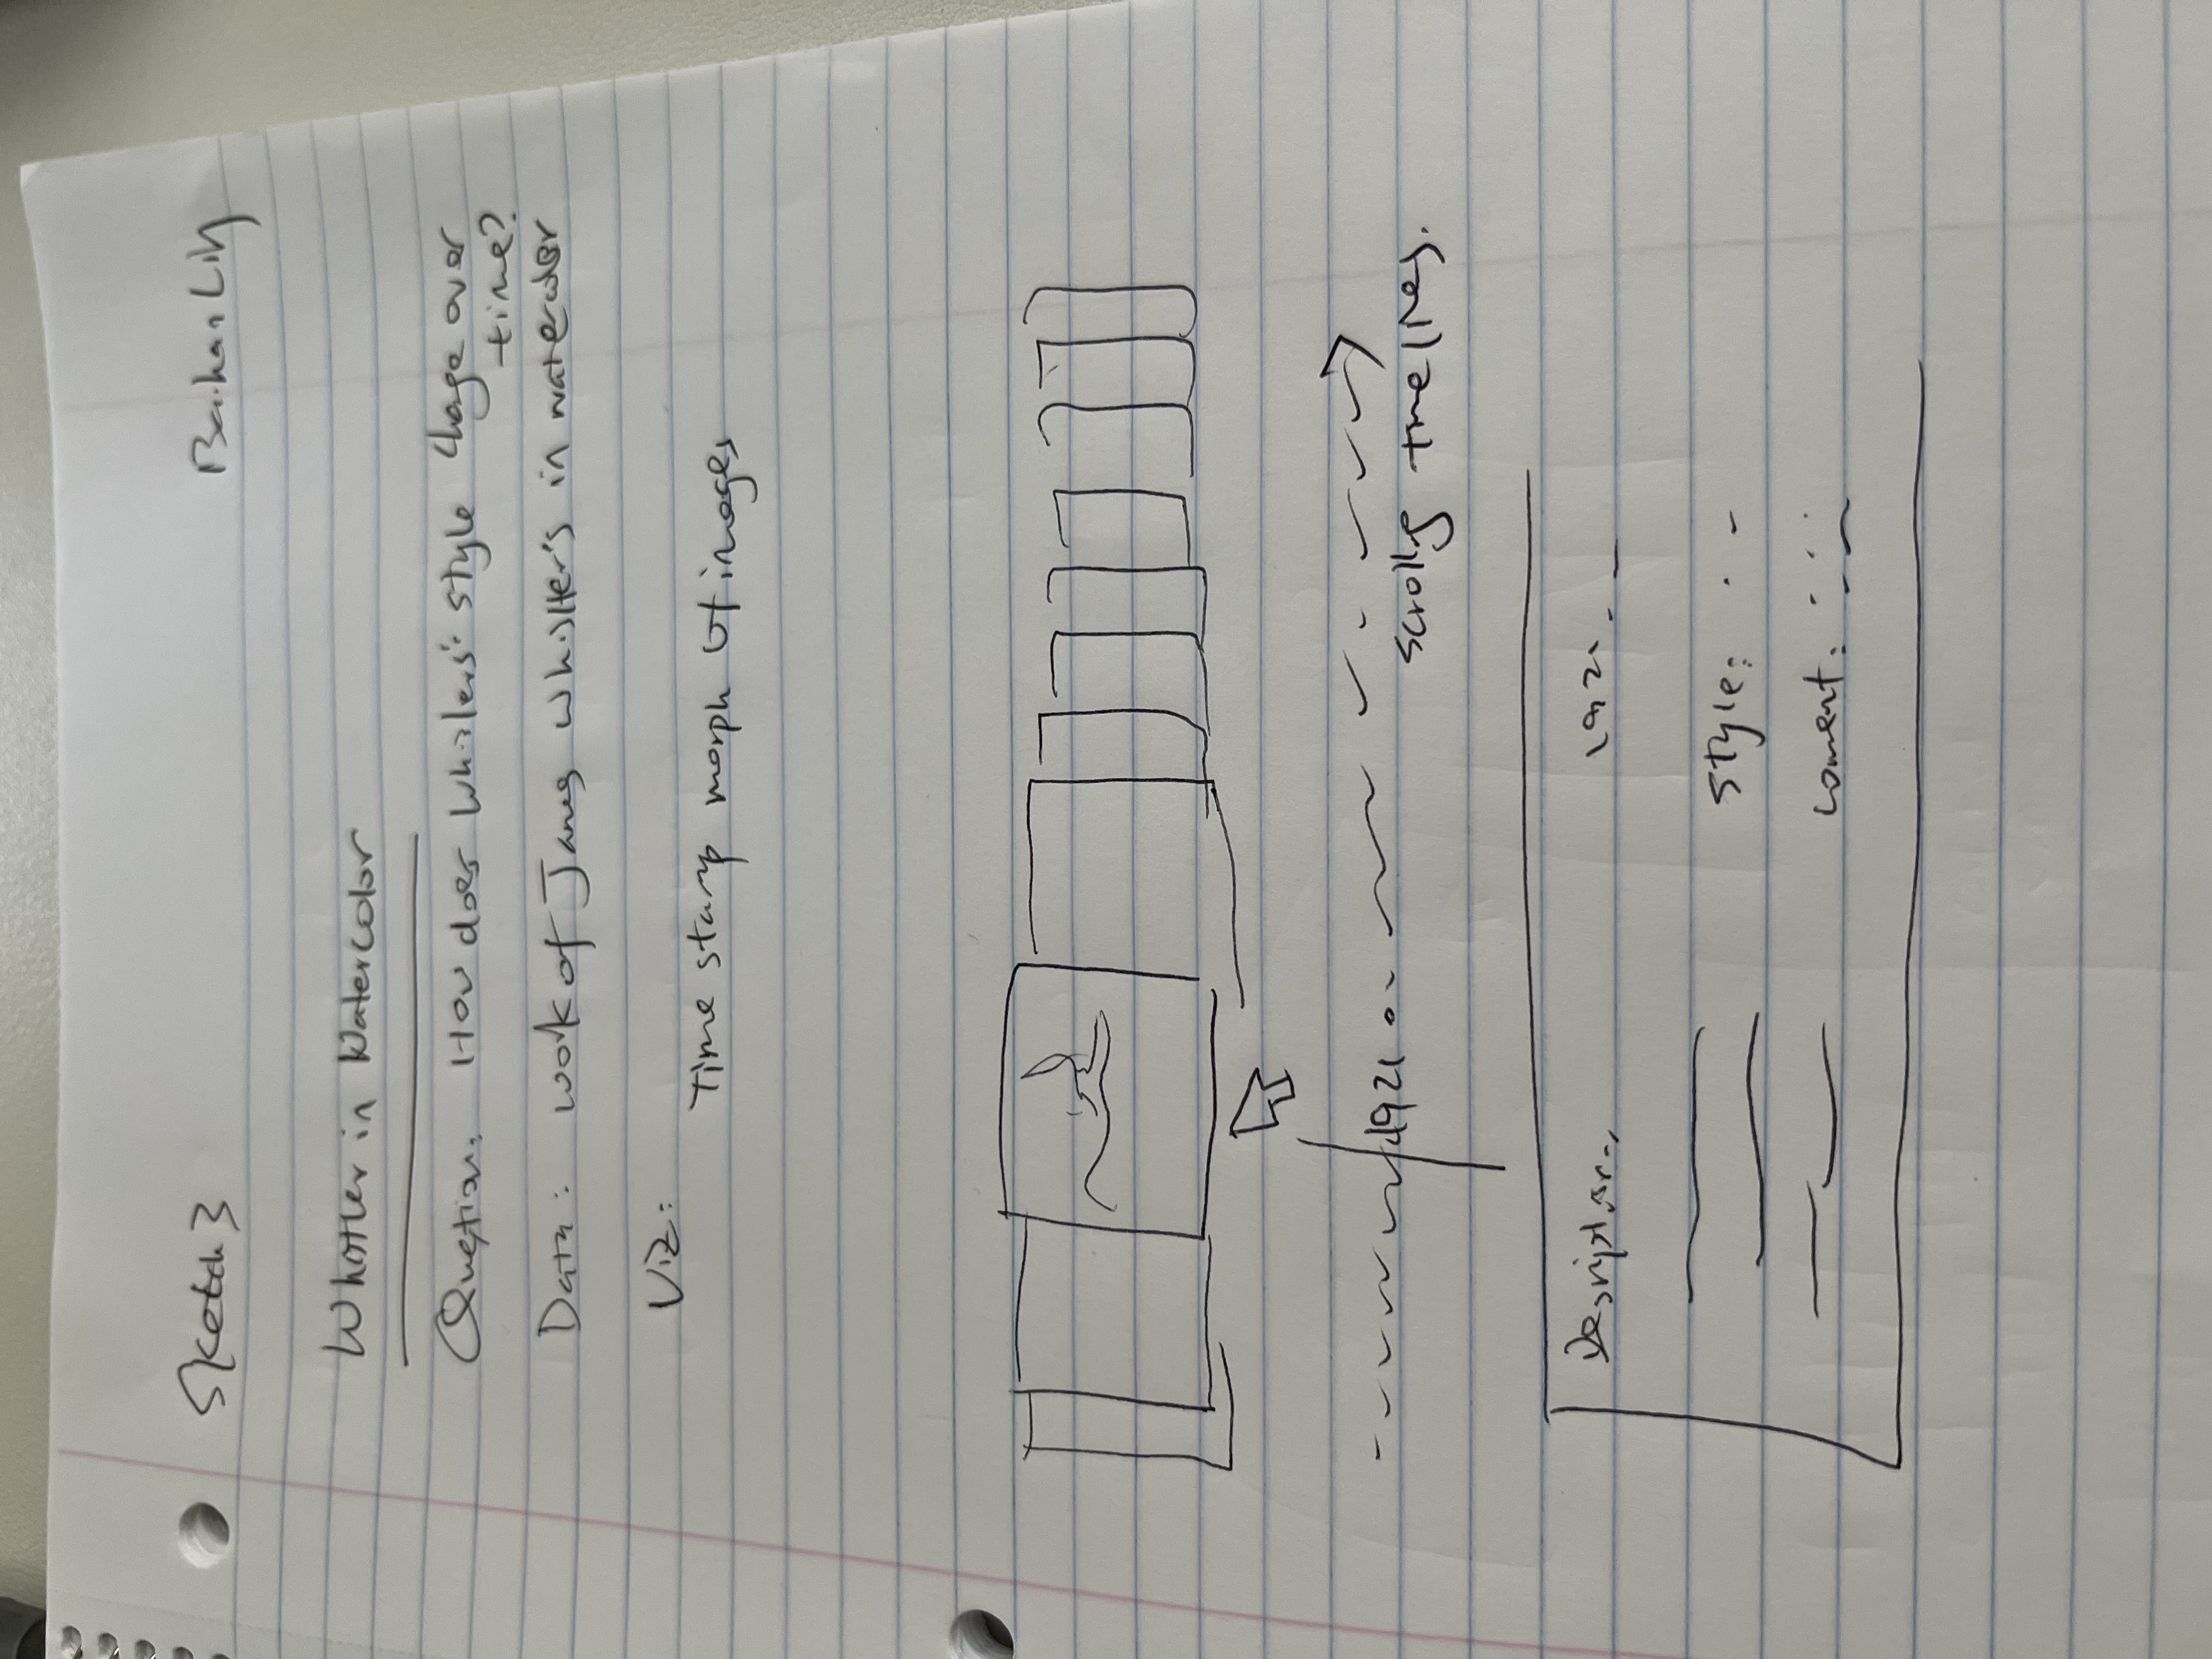 Sketch 3
Baihan Lin
Whistler in Watercolor
Question: How does Whislers' style change over
time?
Data: work of James Whistler's in watercolor
Viz:
Time stamp morph of images
1921
scrolling timelines.
Description
1921
Style:
Coment: